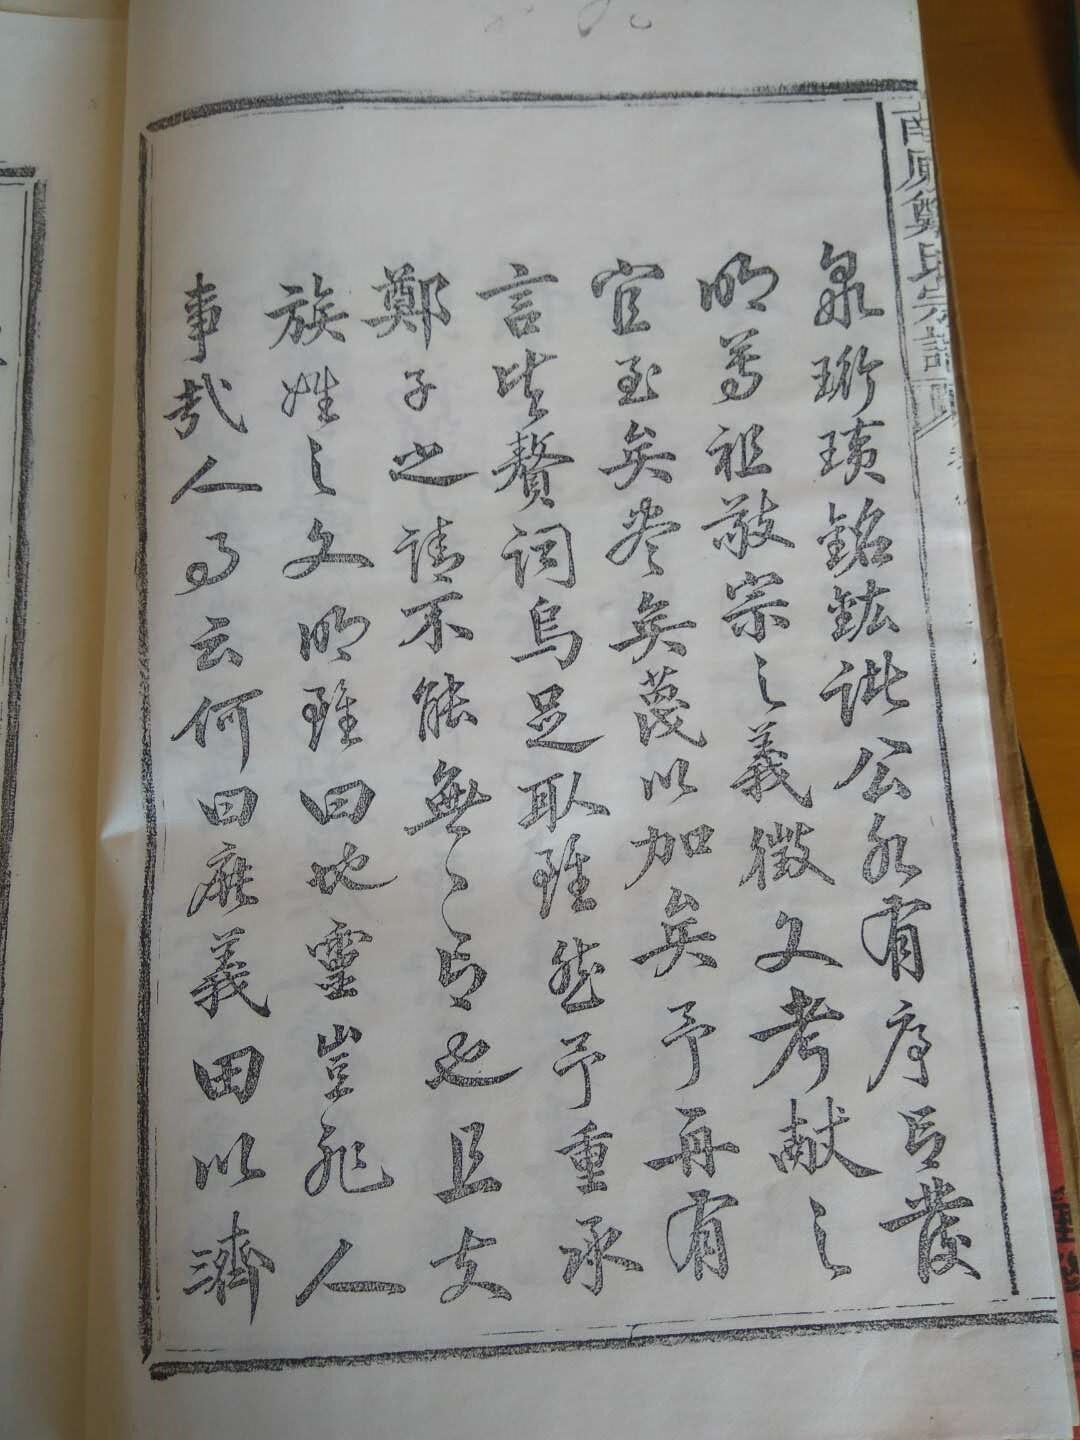 南原鄭氏宗譜
泉珩璜銘鈜諸公各有序以發
明尊祖敬宗之義徵文考献之
官至矣尽矣蔑以加矣予再有
言皆贅詞烏足取雖然予重承
鄭子之請不能無言以也且支
族姓之文明雖曰地靈豈非人
事哉人事云何曰庶義田以濟